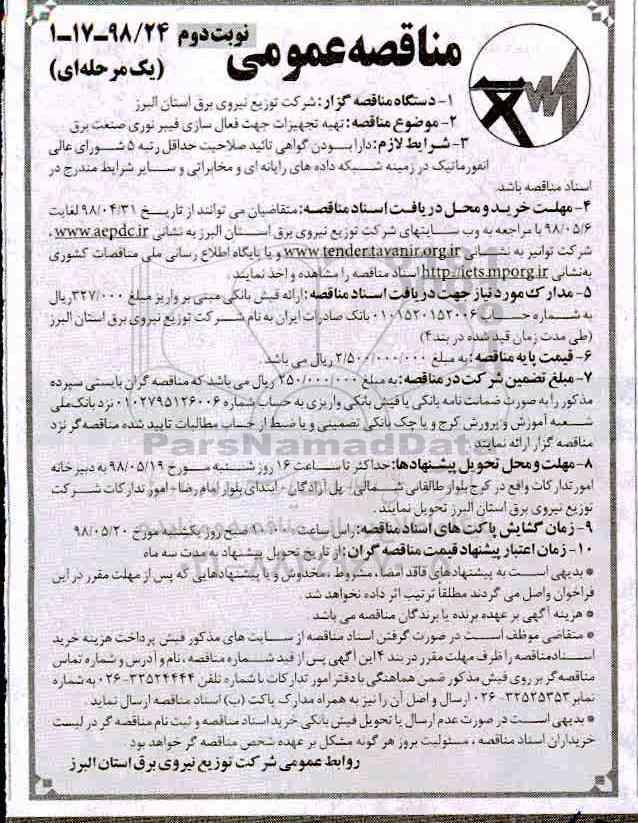 مناقصه عمومی نوبت دوم ۹۸/۲۴-۱۷-۱
(یک مرحله ای)
۱- دستگاه مناقصه گزار: شرکت توزیع نیروی برق استان البرز
۲- موضوع مناقصه: تهیه تجهیزات جهت فعال سازی فیبر نوری صنعت برق
۳- شرایط لازم: دارا بودن گواهی تائید صلاحیت حداقل رتبه ۵ شورای عالی
انفورماتیک در زمینه شبکه داده های رایانه ای و مخابراتی و سایر شرایط مندرج در
اسناد مناقصه باشد.
۴- مهلت خرید و محل دریافت اسناد مناقصه: متقاضیان می توانند از تاریخ ۹۸/۰۴/۳۱ لغایت
۹۸/۰۵/۶ با مراجعه به وب سایتهای شرکت توزیع نیروی برق استان البرز به نشانی www.aepdc.ir ،
شرکت توانیر به نشانی www.tender.tavanir.org.ir و یا پایگاه اطلاع رسانی ملی مناقصات کشوری
به نشانی http://iets.mporg.ir اسناد مناقصه را مشاهده و اخذ نمایند.
۵- مدارک مورد نیاز جهت دریافت اسناد مناقصه: ارائه فیش بانکی مبنی بر واریز مبلغ ۳۲۷/۰۰۰ ریال
به شماره حساب ۰۱۰۱۵۲۰۱۵۲۰۰۶ بانک صادرات ایران به نام شرکت توزیع نیروی برق استان البرز
(طی مدت زمان قید شده در بند ۴)
۶- قیمت پایه مناقصه: به مبلغ ۲/۵۰۰/۰۰۰/۰۰۰ ریال می باشد.
۷- مبلغ تضمین شرکت در مناقصه: به مبلغ ۲۵۰/۰۰۰/۰۰۰ ریال می باشد که مناقصه گران بایستی سپرده
مذکور را به صورت ضمانت نامه بانکی یا فیش بانکی واریزی به حساب شماره ۰۱۰۲۷۹۵۱۲۶۰۰۶ نزد بانک ملی
شعبه آموزش و پرورش کرج و یا چک بانکی تضمینی و یا ضبط از حساب مطالبات تایید شده مناقصه گر نزد
مناقصه گزار ارائه نمایند.
۸- مهلت و محل تحویل پیشنهادها: حداکثر تا ساعت ۱۶ روز شنبه مورخ ۹۸/۰۵/۱۹ به دبیرخانه
امور تدارکات واقع در کرج بلوار طالقانی شمالی- پل آزادگان- ابتدای بلوار امام رضا- امور تدارکات شرکت
توزیع نیروی برق استان البرز تحویل نمایند.
۹- زمان گشایش پاکت های اسناد مناقصه: راس ساعت ۱۰:۰۰ صبح روز یکشنبه مورخ ۹۸/۰۵/۲۰
۱۰- زمان اعتبار پیشنهاد قیمت مناقصه گران: از تاریخ تحویل پیشنهاد به مدت سه ماه
* بدیهی است به پیشنهادهای فاقد امضا، مشروط، مخدوش و یا پیشنهادهایی که پس از مهلت مقرر در این
فراخوان واصل می گردند مطلقاً ترتیب اثر داده نخواهد شد.
* هزینه آگهی بر عهده برنده یا برندگان مناقصه می باشد.
* متقاضی موظف است در صورت گرفتن اسناد مناقصه از سایت های مذکور فیش پرداخت هزینه خرید
اسناد مناقصه را ظرف مهلت مقرر در بند ۴ این آگهی پس از قید شماره مناقصه، نام و آدرس و شماره تماس
مناقصه گر بر روی فیش مذکور ضمن هماهنگی با دفتر امور تدارکات با شماره تلفن ۳۲۵۲۴۴۴۴-۰۲۶ به شماره
نمابر ۳۲۵۲۵۳۵۳-۰۲۶ ارسال و اصل آن را نیز به همراه مدارک پاکت (ب) اسناد مناقصه ارسال نماید.
* بدیهی است در صورت عدم ارسال یا تحویل فیش بانکی خرید اسناد مناقصه و ثبت نام مناقصه گر در لیست
خریداران اسناد مناقصه، مسئولیت بروز هر گونه مشکل بر عهده شخص مناقصه گر خواهد بود.
روابط عمومی شرکت توزیع نیروی برق استان البرز
ParsNamadData